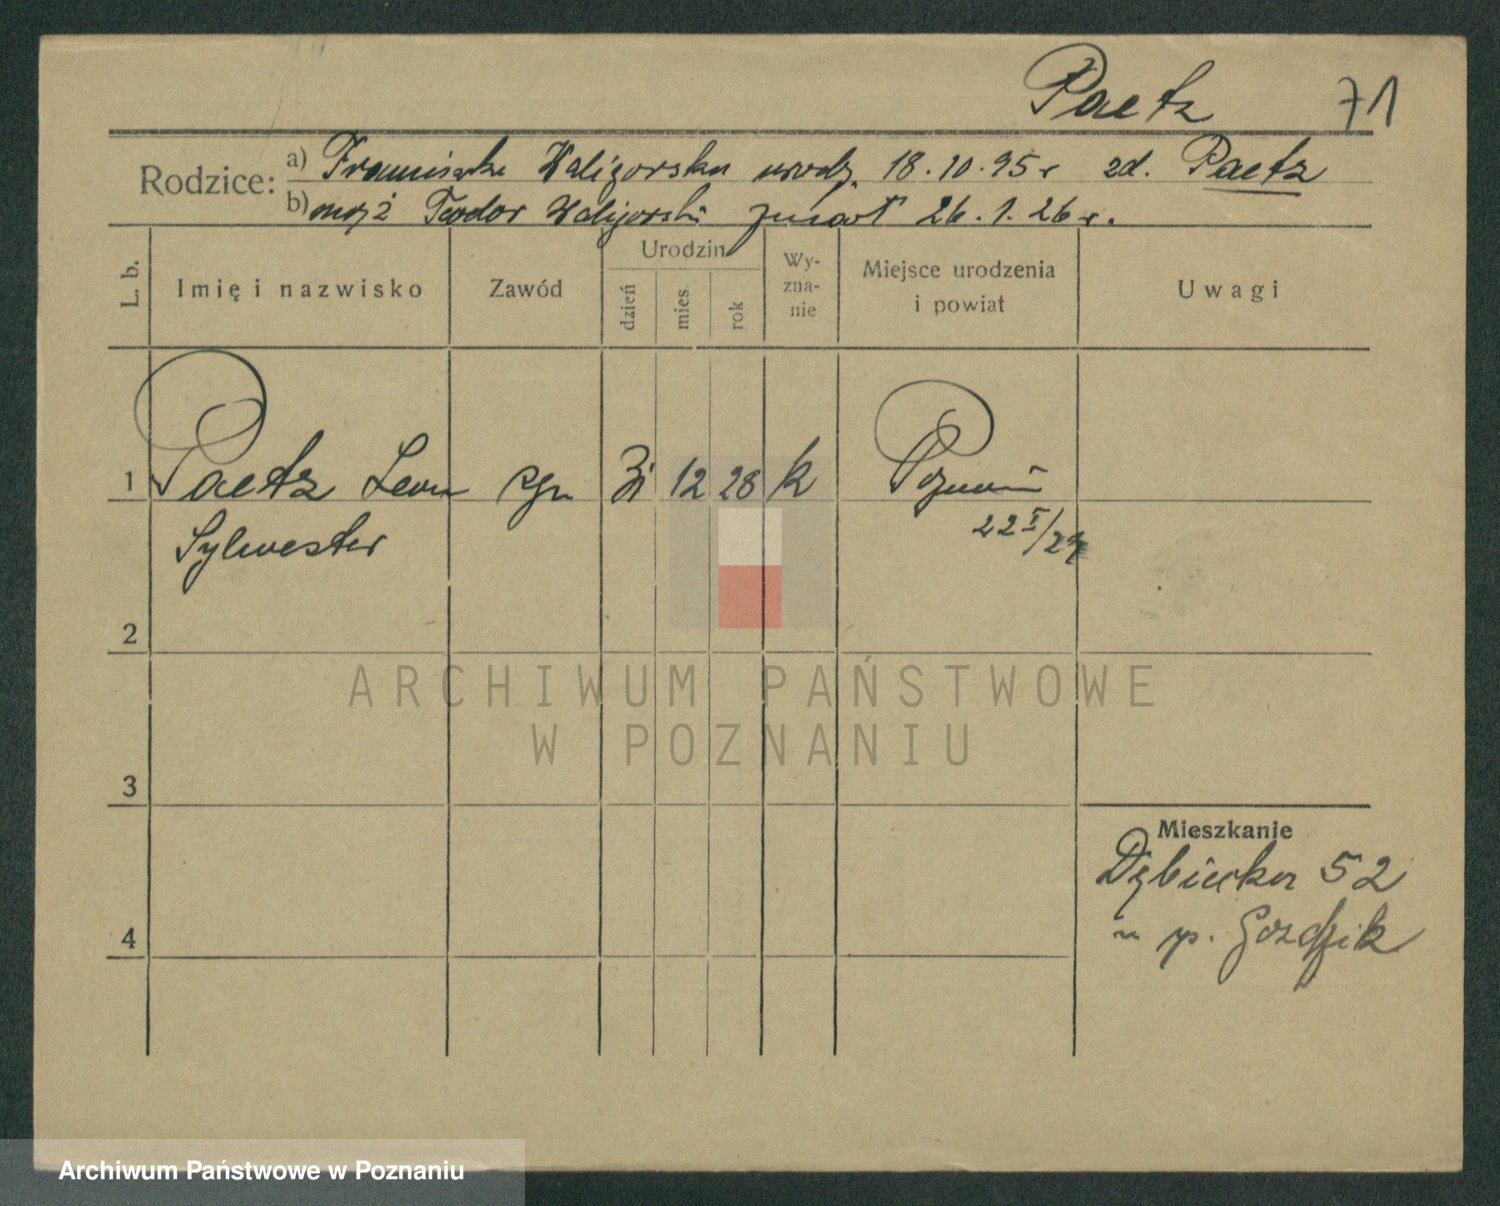 Paetz 71
Rodzice: a) Franciszka Waligorska urodz. 18.10.95 r zd. Paetz
b) mąż Teodor Waligorski zmarł 26.1.26 r.
L. b.
Imię i nazwisko
Zawód
Urodzin
dzień
mies.
rok
Wy-
zna-
nie
Miejsce urodzenia
i powiat
Uwagi
1 Paetz Leon 31 12 28 k Poznań
Sylwester 22 I/29
2
3
4
Mieszkanie
Dębiecka 52
u p. Gozdzik
ARCHIWUM PAŃSTWOWE
W POZNANIU
Archiwum Państwowe w Poznaniu